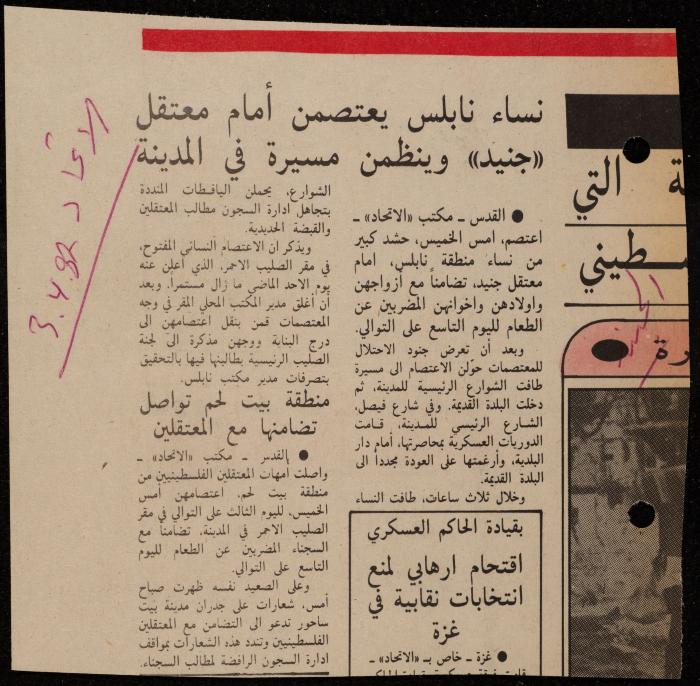 نساء نابلس يعتصمن أمام معتقل
«جنيد» وينظمن مسيرة في المدينة
● القدس ـ مكتب «الاتحاد» ـ
اعتصم، امس الخميس، حشد كبير
من نساء منطقة نابلس، امام
معتقل جنيد، تضامناً مع أزواجهن
واولادهن واخوانهن المضربين عن
الطعام لليوم التاسع على التوالي.
وبعد أن تعرض جنود الاحتلال
للمعتصمات حوّلن الاعتصام الى مسيرة
طافت الشوارع الرئيسية للمدينة، ثم
دخلت البلدة القديمة. وفي شارع فيصل،
الشارع الرئيسي للمدينة، قامت
الدوريات العسكرية بمحاصرتها، أمام دار
البلدية، وأرغمتها على العودة مجددا الى
البلدة القديمة.
وخلال ثلاث ساعات، طافت النساء
الشوارع، يحملن اليافطات المنددة
بتجاهل ادارة السجون مطالب المعتقلين
والقبضة الحديدية.
ويذكر ان الاعتصام النسائي المفتوح،
في مقر الصليب الاحمر، الذي اعلن عنه
يوم الاحد الماضي ما زال مستمرا. وبعد
أن أغلق مدير المكتب المحلي المقر في وجه
المعتصمات قمن بنقل اعتصامهن الى
درج البناية ووجهن مذكرة الى لجنة
الصليب الرئيسية يطالبنها فيها بالتحقيق
بتصرفات مدير مكتب نابلس.
منطقة بيت لحم تواصل
تضامنها مع المعتقلين
● القدس ـ مكتب «الاتحاد» ـ
واصلت امهات المعتقلين الفلسطينيين من
منطقة بيت لحم، اعتصامهن أمس
الخميس، لليوم الثالث على التوالي في مقر
الصليب الاحمر في المدينة، تضامنا مع
السجناء المضربين عن الطعام لليوم
التاسع على التوالي.
وعلى الصعيد نفسه ظهرت صباح
أمس، شعارات على جدران مدينة بيت
ساحور تدعو الى التضامن مع المعتقلين
الفلسطينيين وتندد هذه الشعارات بمواقف
ادارة السجون الرافضة لمطالب السجناء.
بقيادة الحاكم العسكري
اقتحام ارهابي لمنع
انتخابات نقابية في
غزة
● غزة ـ خاص بـ «الاتحاد» ـ
ة التي
ـسطيني
رة ●
الاتحاد
3.4.87